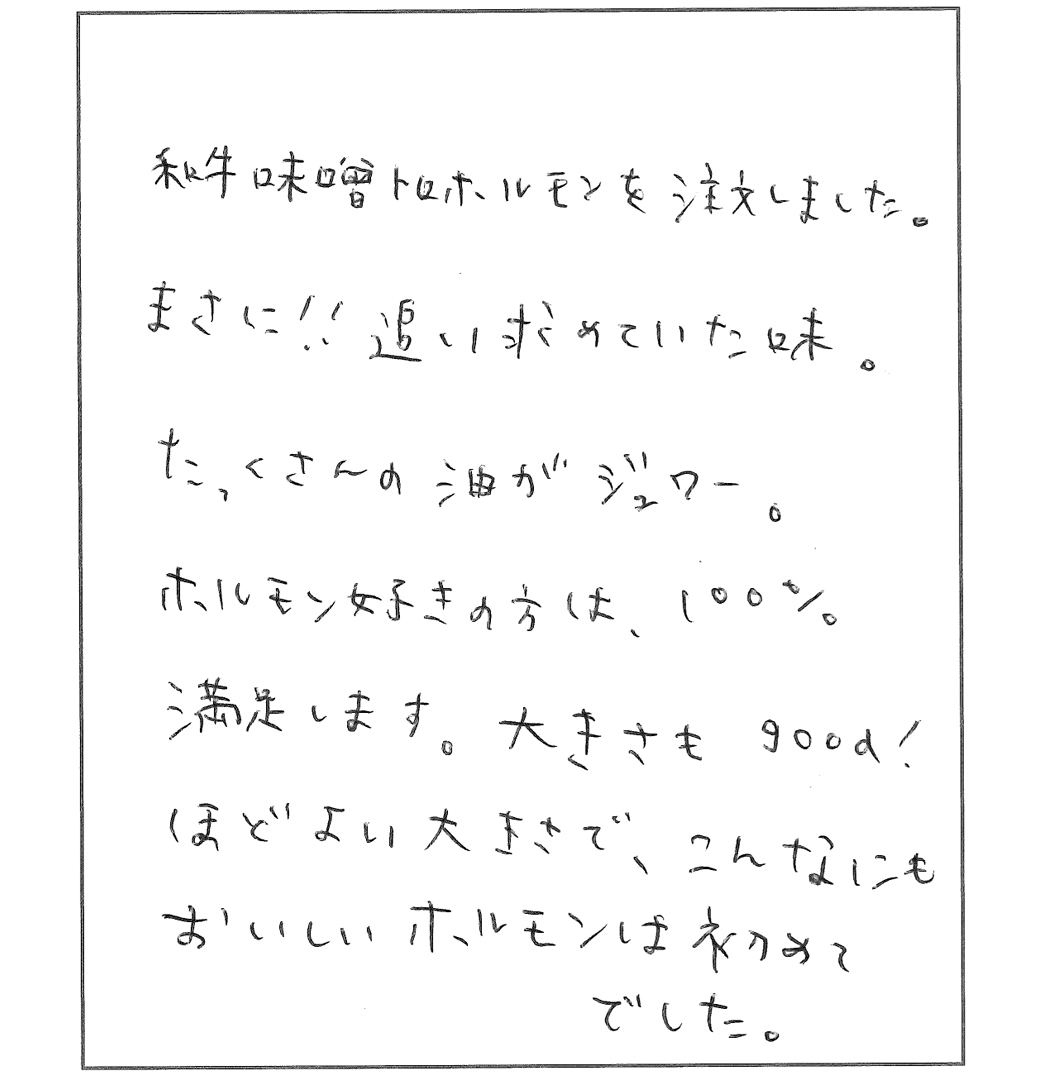 和牛味噌トロホルモンを注文しました。
まさに!!追い求めていた味。
たっくさんの油がジュワー。
ホルモン好きの方は、100%
満足します。大きさもgood!
ほどよい大きさで、こんなにも
おいしいホルモンは初めて
でした。